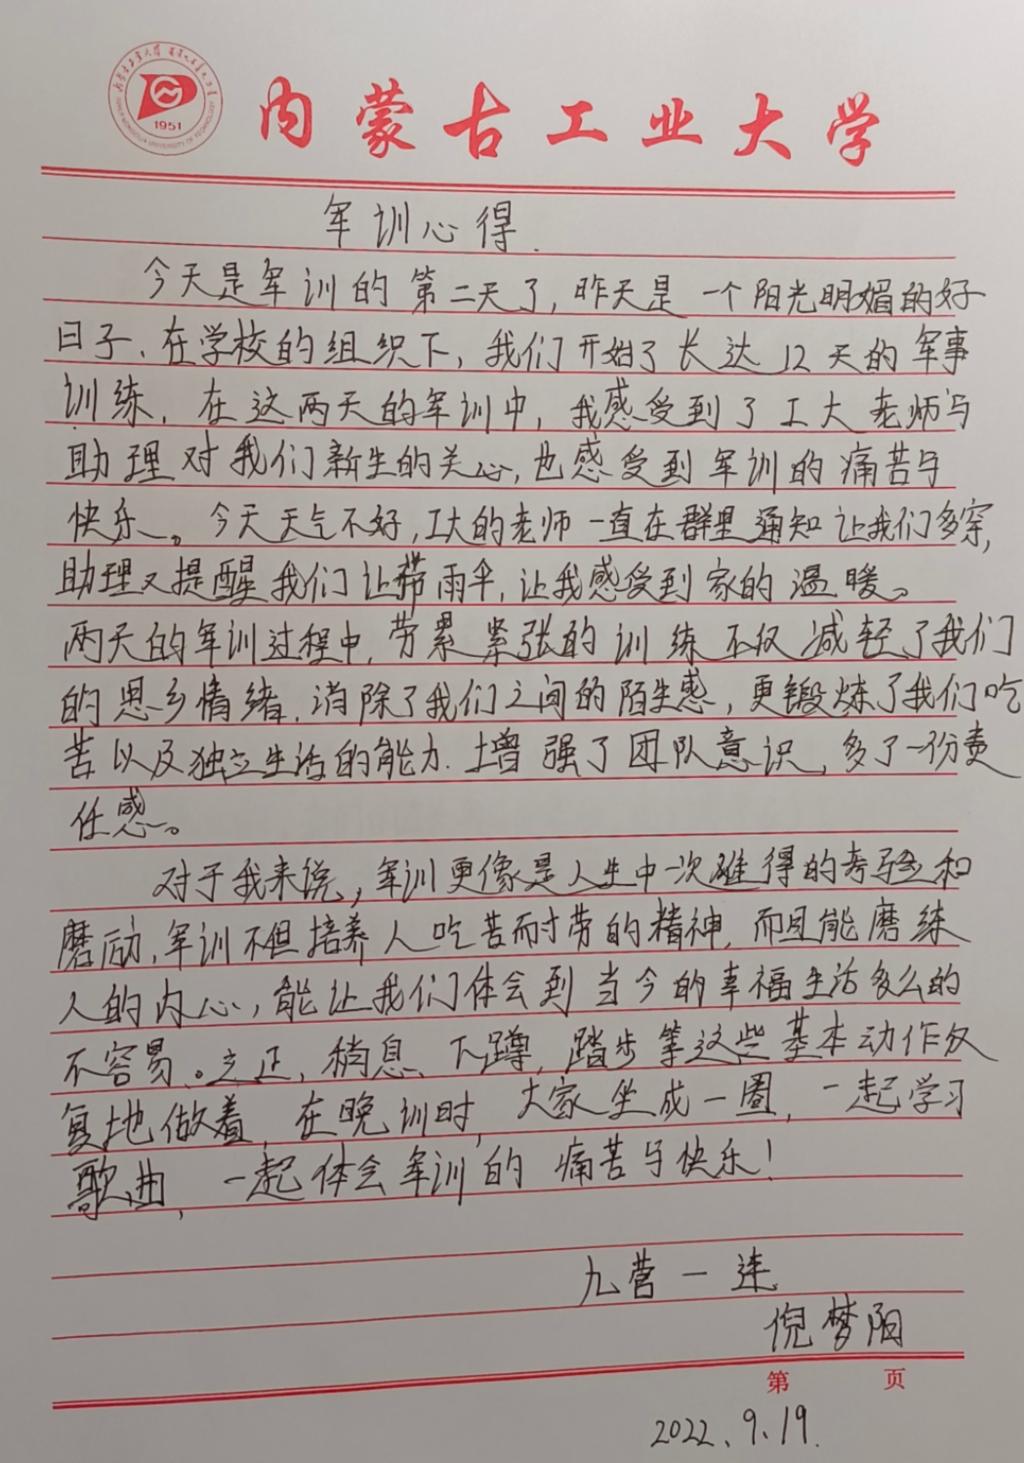 1951
内蒙古工业大学
军训心得.
今天是军训的第二天了,昨天是一个阳光明媚的好
日子、在学校的组织下,我们开始了长达12天的军事
训练,在这两天的军训中,我感受到了工大老师与
助理对我们新生的关心,也感受到军训的痛苦与
快乐。今天天气不好,工大的老师一直在群里通知让我们多穿,
助理又提醒我们让带雨伞,让我感受到家的温暖。
两天的军训过程中,劳累紧张的训练不仅减轻了我们
的思乡情绪,消除了我们之间的陌生感,更锻炼了我们吃
苦以及独立生活的能力.增强了团队意识,多了一份责
任感。
对于我来说,军训更像是人生中一次难得的考验和
磨励,军训不但培养人吃苦而耐劳的精神,而且能磨练
人的内心,能让我们体会到当今的幸福生活多么的
不容易、。立正,稍息、下蹲,踏步等这些基本动作反
复地做着,在晚训时,大家坐成一圈,一起学习
歌曲,一起体会军训的痛苦与快乐!
九营一连
倪梦阳
第 页
2022、9.19.